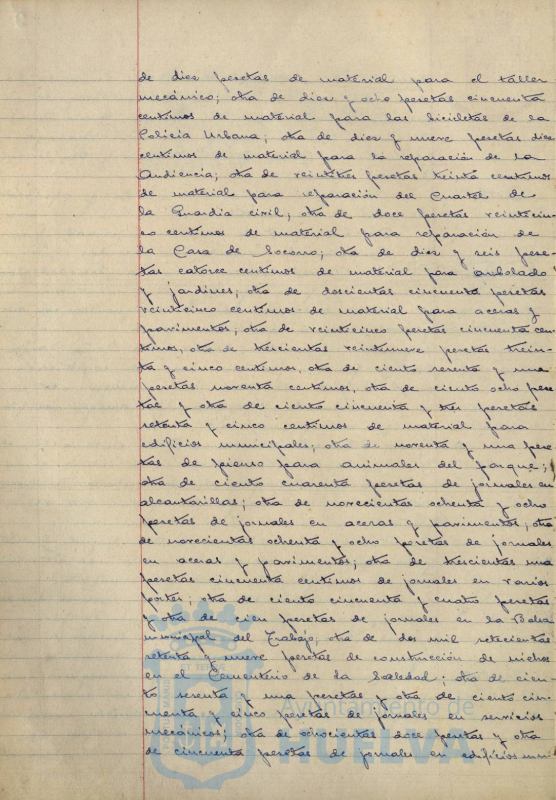 de diez pesetas de material para el taller
mecánico; otra de diez y ocho pesetas cincuenta
centimos de material para las bicicletas de la
Policia Urbana; otra de diez y nueve pesetas diez
centimos de material para la reparación de la
Audiencia; otra de veintitres pesetas treinta centimos
de material para reparación del Cuartel de
la Guardia civil; otra de doce pesetas veinticin-
co centimos de material para reparación de
la Casa de Socorro; otra de diez y seis pese-
tas catorce centimos de material para arbolado
y jardines; otra de doscientas cincuenta pesetas
veinticinco centimos de material para aceras y
pavimentos; otra de veinticinco pesetas cincuenta cen
timos, otra de trescientas veintinueve pesetas trein-
ta y cinco centimos, otra de ciento sesenta y una
pesetas noventa centimos, otra de ciento ocho pese
tas y otra de ciento cincuenta y tres pesetas
setenta y cinco centimos de material para
edificios municipales; otra de noventa y una pese
tas de pienso para animales del parque;
otra de ciento cuarenta pesetas de jornales en
alcantarillas; otra de novecientas ochenta y ocho
pesetas de jornales en aceras y pavimentos; otra
de novecientas ochenta y ocho pesetas de jornales
en aceras y pavimentos; otra de trescientas una
pesetas cincuenta centimos de jornales en varios
portes; otra de ciento cincuenta y cuatro pesetas
y otra de cien pesetas de jornales en la Bolsa
municipal del Trabajo; otra de dos mil setecientas
setenta y nueve pesetas de construcción de nichos
en el Cementerio de la Soledad; otra de cien-
to sesenta y una pesetas y otra de ciento cin-
cuenta y cinco pesetas de jornales en servicios
mecánicos; otra de ochocientas doce pesetas y otra
de cincuenta pesetas de jornales en edificios muni-
Ayuntamiento de
HUELVA